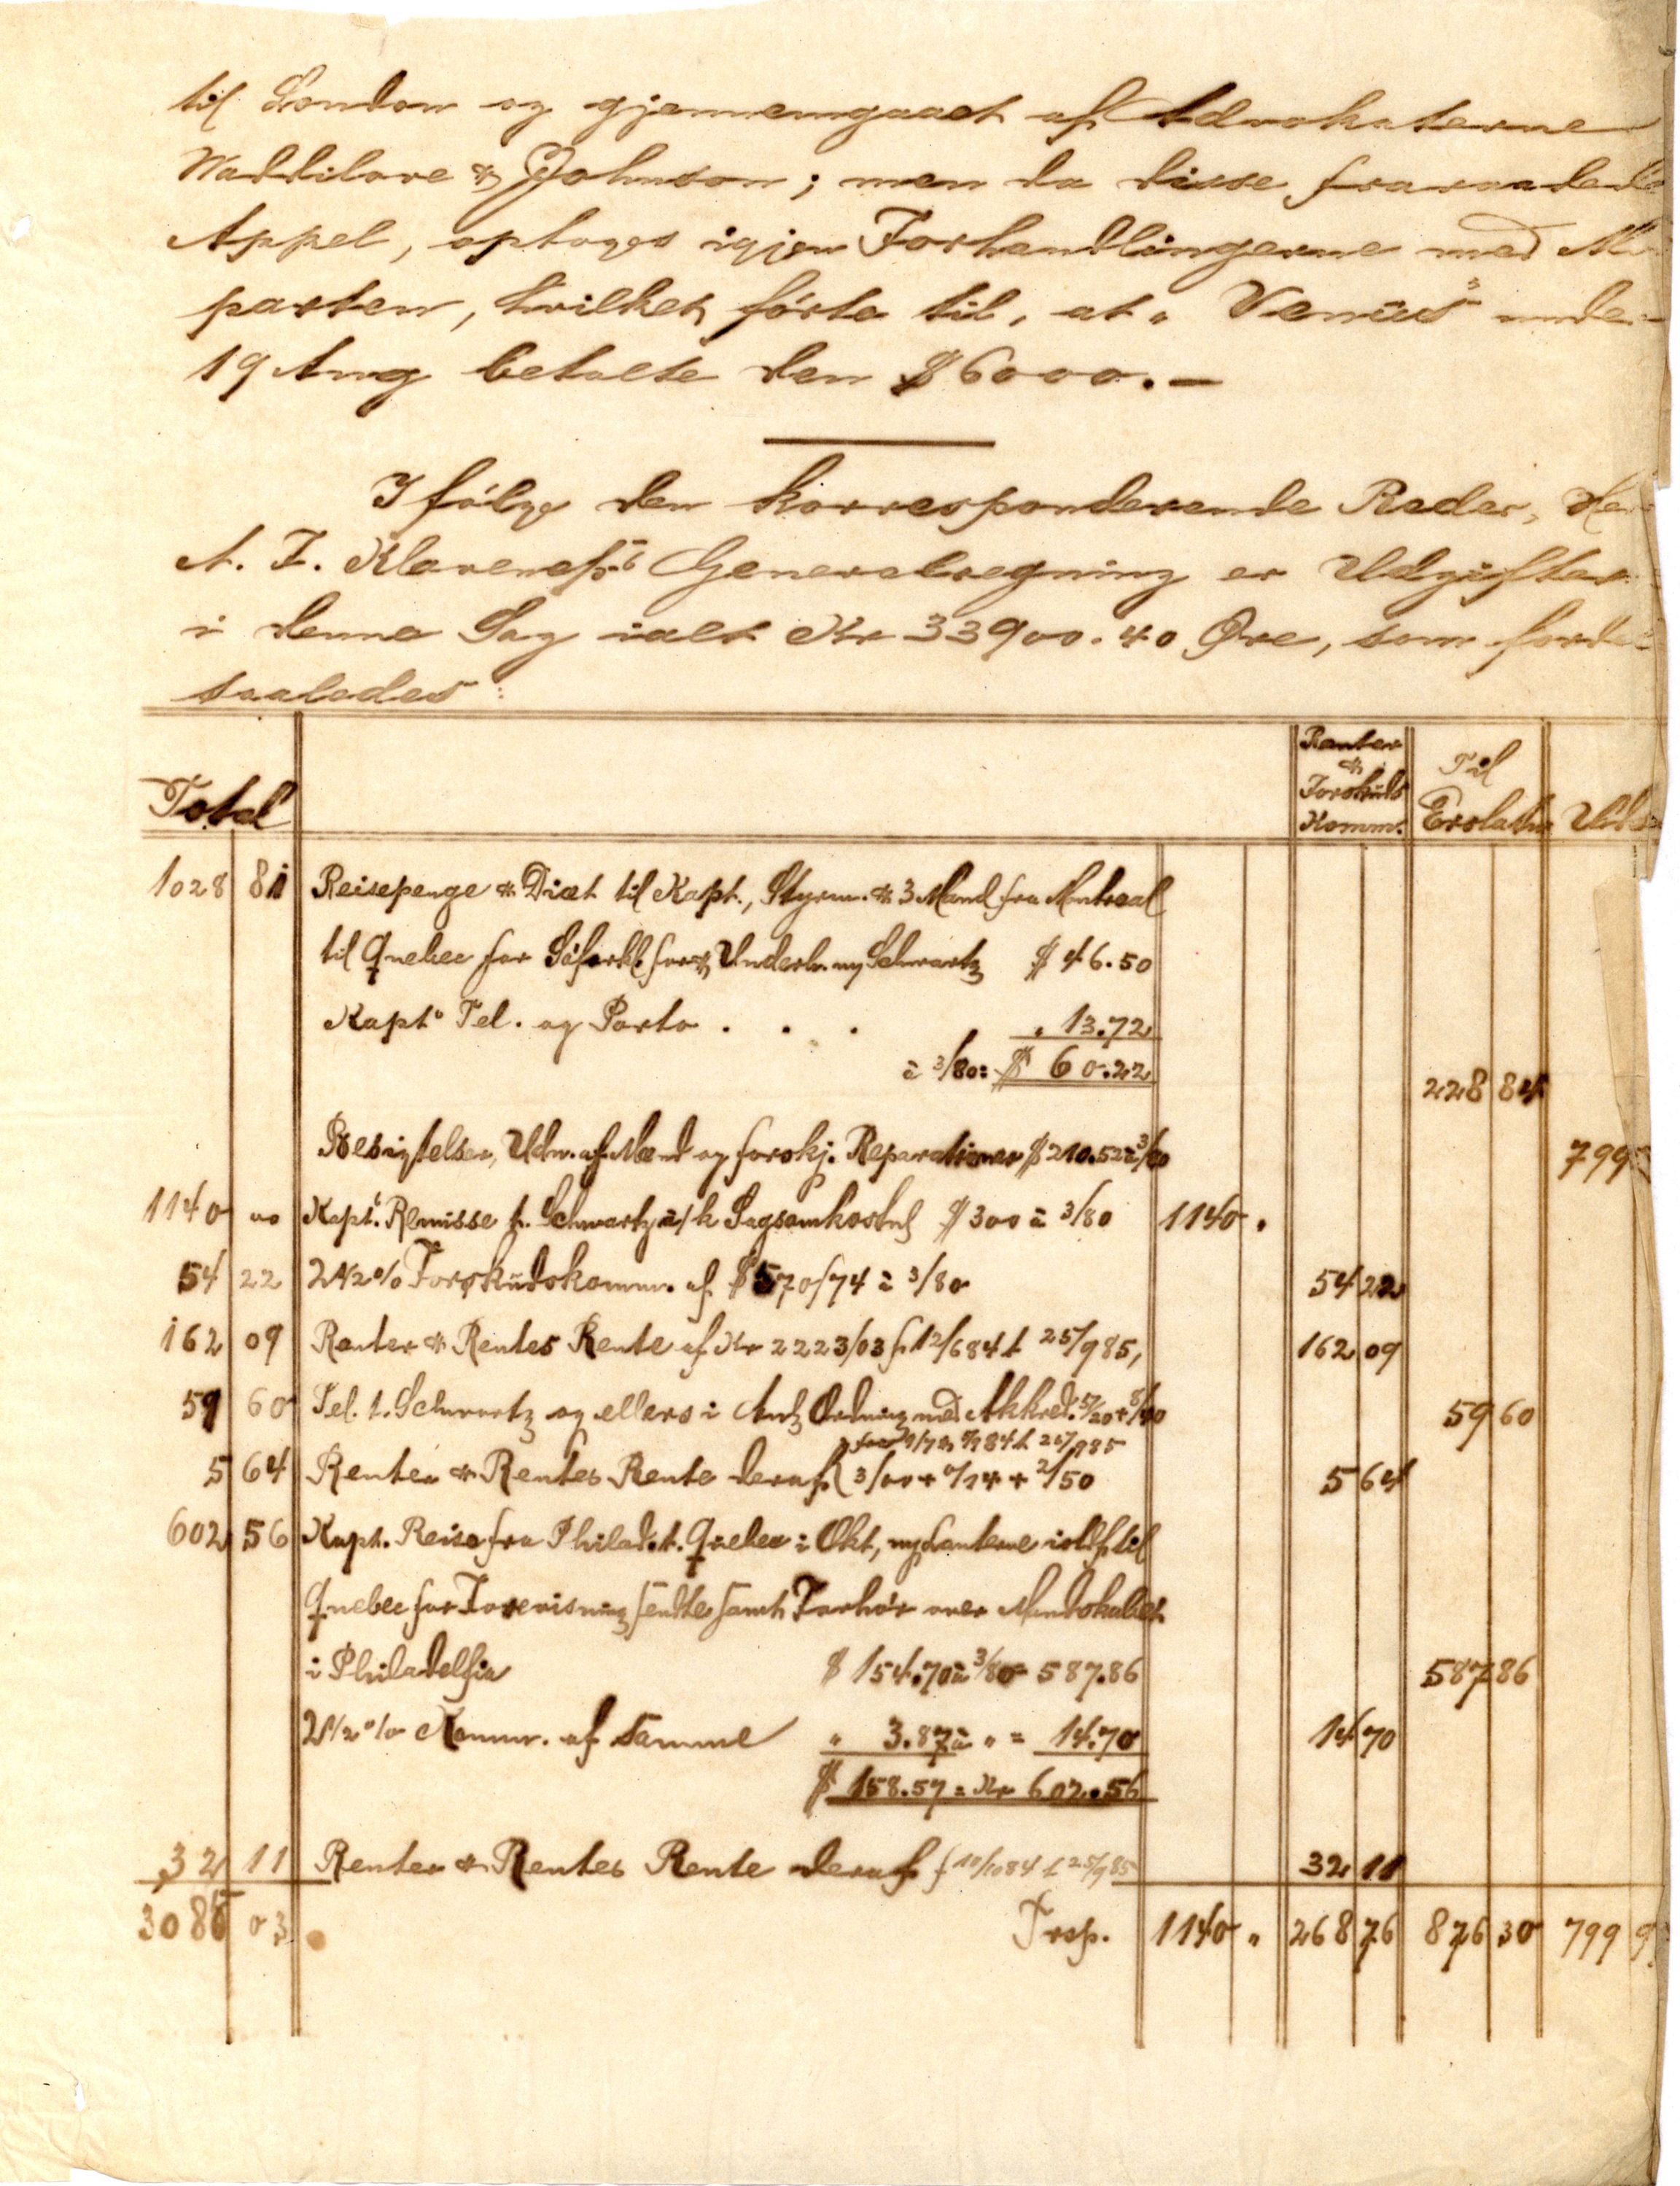 til London og gjennemgaaet af Advokaterne
Waddilove & Johnson; men da disse fraraadede
Appel, optoges igjen Forhandlingerne med
parten, hvilket førte til, at „Venus"
19 Aug betalte den $ 6000.—
Ifølge den korresponderende Reder,
A. F. Klaveness's Generalregning er Udgifter
i denne Sag ialt Kr 33900.40 Øre, som
saaledes:
Total Renter & Forskuds Komm. Til Erstatn
1028 81 Reisepenge & Diæt til Kapt., Styrm. & 3 Mand fra Montreal
til Quebec for Søforkl. for Schwartz $ 46.50
Kapt's Tel. og Porto . . . „ 13.72
à 3/80 = $ 60.22 228 84
Besigtelser, Udn. af Mænd og forskj. Reparationer $ 210.52 à 3/80 799
1140 00 Kapt's Remisse t. Schwartz a/k Sagsomkostn $ 300 à 3/80 1140 „
54 22 2 1/2 % Forskudskomm. af $ 570/74 à 3/80 54 22
162 09 Renter & Rentes Rente af Kr 2223/03 f 12/6 84 t 25/9 85, 162 09
59 60 Tel. t. Schwartz og ellers i Ordning med Akkred. 59 60
5 64 Renter & Rentes Rente deraf 3/00 + 0/24 + 2/50 5 64
602 56 Kapt. Reise fra Philad. t. Quebec i Okt, til
Quebec for Forevisning sendte samt Forhør over Mandskabet
i Philadelfia $ 154.70 à 3/80 = 587.86 587 86
2 1/2 % Komm. af samme „ 3.87 à „ = 14.70 14 70
$ 158.57 = Kr 602.56
32 11 Renter & Rentes Rente deraf f 10/10 84 t 25/9 85 32 11
3085 03 Trsp. 1140 „ 268 76 876 30 799 9